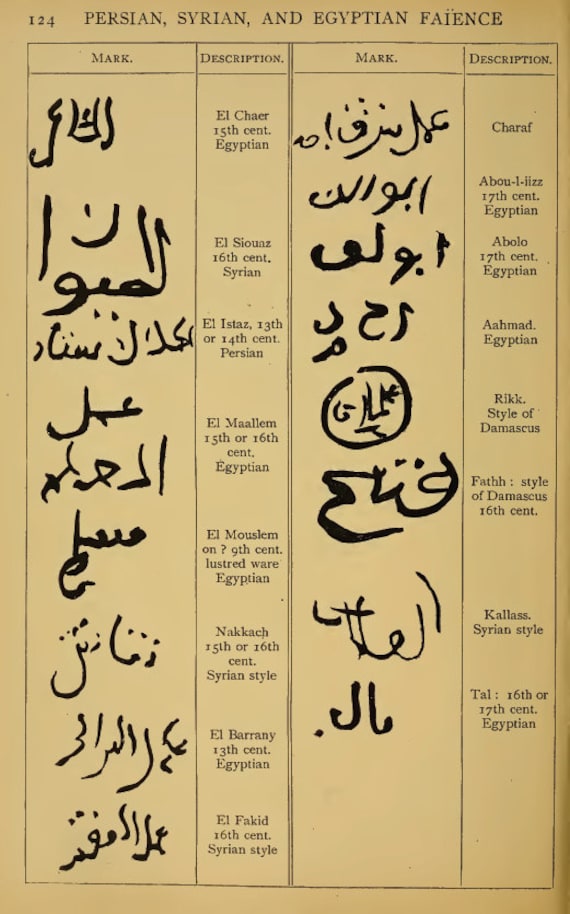 124 PERSIAN, SYRIAN, AND EGYPTIAN FAÏENCE
MARK.
DESCRIPTION.
El Chaer
15th cent.
Egyptian
El Siouaz
16th cent.
Syrian
El Istaz, 13th
or 14th cent.
Persian
عمل
El Maallem
15th or 16th
cent.
Egyptian
مسلم
El Mouslem
on ? 9th cent.
lustred ware
Egyptian
Nakkach
15th or 16th
cent.
Syrian style
El Barrany
13th cent.
Egyptian
El Fakid
16th cent.
Syrian style
MARK.
DESCRIPTION.
Charaf
Abou-l-iizz
17th cent.
Egyptian
Abolo
17th cent.
Egyptian
Aahmad.
Egyptian
Rikk.
Style of
Damascus
فتح
Fathh : style
of Damascus
16th cent.
Kallass.
Syrian style
Tal : 16th or
17th cent.
Egyptian